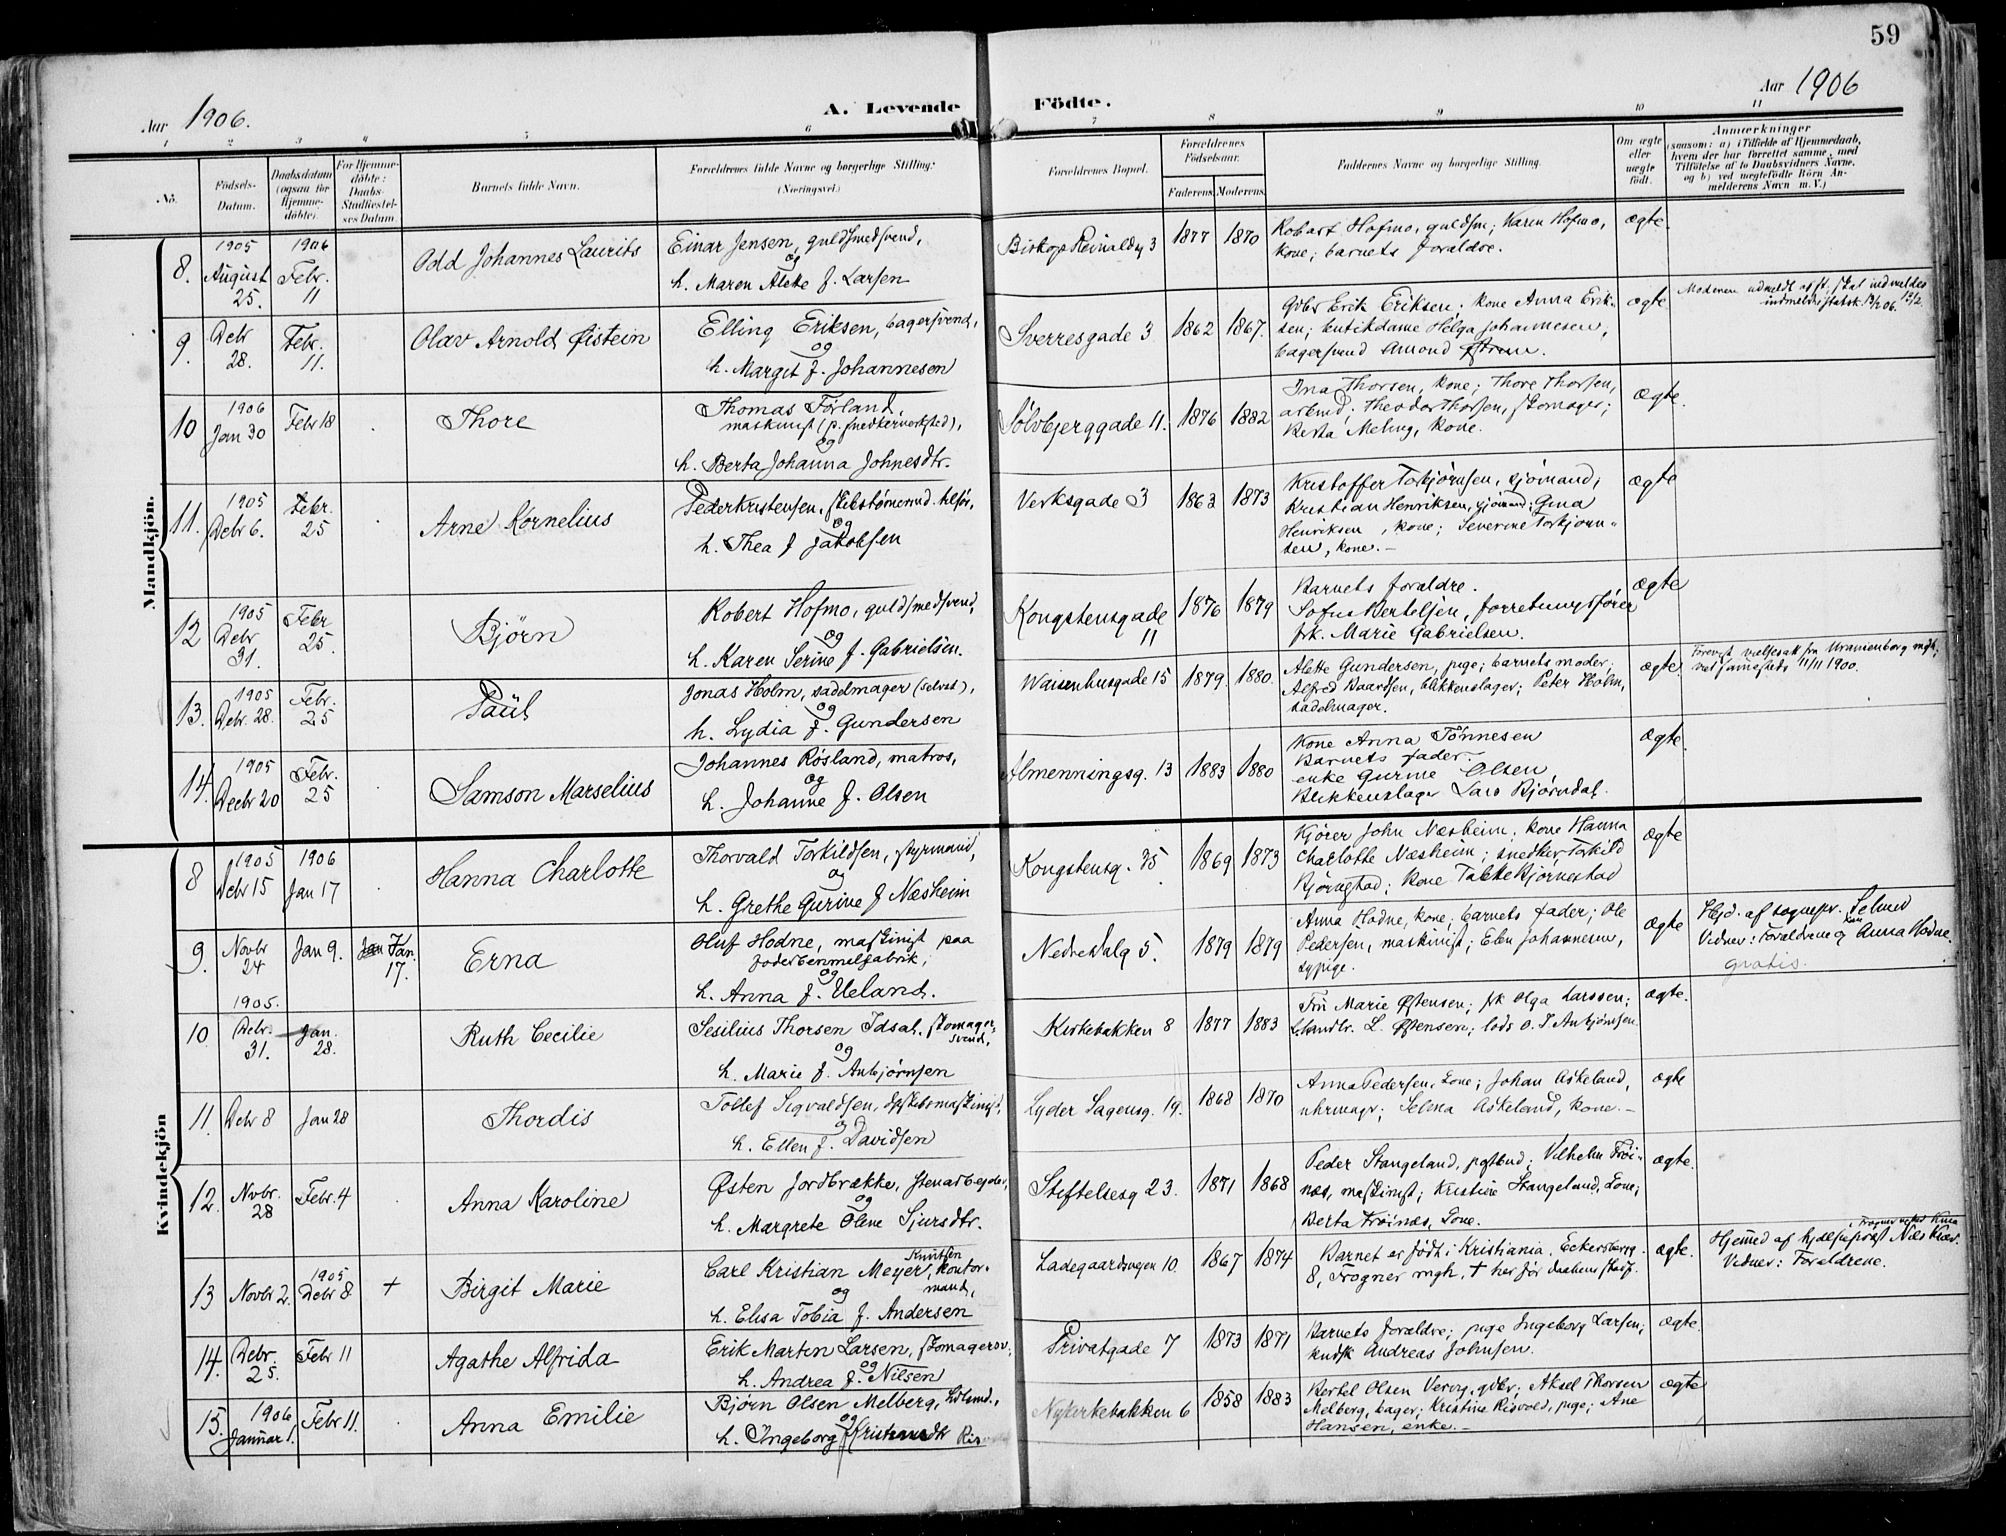 59
Aar 1906.
A. Levende Födte.
Aar 1906
1 2 3 4 5 6 7 8 9 10 11
No.
Födsels-Datum.
Daabsdatum (ogsaa for Hjemme-döbte).
For Hjemme-döbte: Daabs-Stadfæstel-ses Datum
Barnets fulde Navn.
Forældrenes fulde Navne og borgerlige Stilling: (Næringsvei.)
Forældrenes Bopæl.
Forældrenes Födselsaar.
Faderens. Moderens.
Faddernes Navne og borgerlige Stilling.
Om ægte eller uægte födt.
Anmærkninger
(saasom: a) i Tilfælde af Hjemmedaab,
hvem der har forrettet samme, med
Tilföielse af to Daabsvidners Navne,
og b) ved uægtefödte Börn An-
melderens Navn m. V.)
Mandkjön.
8. 1905 August 25. 1906 Febr. 11
Odd Johannes Laurits
Einar Jensen, guldsmedsvend,
og
h. Maren Alette f. Larsen
Biskop Reinaldsg 3
1877 1870
Robert Hofmo, guldsm; Karen Hofmo,
kone; barnets forældre.
ægte.
9. Debr 28. Febr. 11.
Olav Arnold Øistein
Elling Eriksen, bagersvend,
og
h. Margit f. Johannesen
Sverresgade 3
1862 1867.
Gdbr Erik Eriksen; kone Anna Erik-
sen; butikdame Helga Johannesen,
bagersvend Amond
ægte
Moderen udmeldt af st.
10 1906 Jan 30 Febr 18
Thore
Thomas Førland,
maskinist (p. snedkerverksted),
og
h. Berta Johanna Johnesdtr.
Sølvbjerggade 11.
1876 1882
Ina Thorsen, kone; Thore Thorsen,
arbmd; Theodor Thorsen, skomager;
Berta Meling, kone.
ægte.
11. 1905 Debr 6. Febr. 25
Arne Kornelius
Peder Kristensen, skibstømermd.
og
h. Thea f Jakobsen
Verksgade 3
1863 1873
Kristoffer Torbjørnsen, sjømand;
Kristian Henriksen, sjømand; Gina
Henriksen, kone; Severine Torbjørn-
sen, kone.-
ægte
12 1905 Debr 31. Febr 25.
Bjørn
Robert Hofmo, guldsmedsvend,
og
h. Karen Serine f. Gabrielsen.
Kongstensgade 11
1876 1879
Barnets forældre.
Sofus Bertelsen, forretningsfører
frk. Marie Gabrielsen.
ægte
13. 1905 Debr. 28. Febr. 25
Paul
Jonas Holm, sadelmager (selvst),
og
h. Lydia f. Gundersen
Waisenhusgade 15
1879. 1880.
Alette Gundersen, pige; barnets moder;
Alfred Baardsen, blikkenslager; Peter Holm,
sadelmager.
ægte.
Forevist vielsesatt fra Uranienborg mgh,
viet sammesteds 11/11 1900.
14. 1905 Decbr 20 Febr. 25
Samson Marselius
Johannes Røsland, matros,
og
h. Johanne f. Olsen
Almenningsg. 13
1883 1880
Kone Anna Tönnesen
Barnets fader.
enke Gurine Olsen
Blikkenslager Lars Bjørndal.
ægte.
Kvindekjön
8 1905 Debr 15 1906 Jan 17
Hanna Charlotte
Thorvald Torkildsen, styrmand,
og
h. Grethe Gurine f Næsheim
Kongstensg. 35
1869 1873
Kjører John Næsheim, kone Hanna
Charlotte Næsheim; snedker Torkild
Bjørnstad; kone Tabke Bjørnestad
ægte
9. Novbr 24 Jan 9. Jan 17.
Erna
Oluf Hodne, maskinist paa
foderbenmelsfabrik,
og
h. Anna f. Ueland.
Nedre Dalg 5.
1879 1879
Anna Hodne, kone; barnets fader; Ole
Pedersen, maskinist; Elen Johannesen,
sypige.
ægte
Hjd. af sognepr. Selmer
Vidner: Forældrene og Anna Hodne.
gratis.
10. 1905. Debr. 31. Jan. 28.
Ruth Cecilie
Sesilius Thorsen Idsal, skomager-
svend,
og
h. Marie f. Anbjørnsen
Kirkebakken 8
1877 1883
Fru Marie Østensen; frk Olga Larssen;
handlr. L. Østensen; lods O. T Anbjørnsen.
ægte.
11. Debr 8 Jan 28
Thordis
Tollef Sigvaldsen, dpskibsmaskinist,
og
h. Ellen f. Davidsen
Lyder Sagensg. 19.
1868 1870
Anna Pedersen, kone; Johan Askeland,
uhrmagr; Selma Askeland, kone.-
ægte
12. Novbr. 28 Febr. 4
Anna Karoline
Østen Jordbrække, stenarbeider,
og
h. Margrete Oline Sjursdtr.
Stiftelsesg 23.
1871 1868
Peder Stangeland, postbud; Vilhelm Frøi-
næs, maskinist; Kristine Stangeland, kone;
Berta Frøinæs, kone.
ægte.
13 Novbr 2. 1905 Debr 8 +
Birgit Marie
Carl Kristian Meyer Knutsen, kontor-
mand,
og
h. Elisa Tobia f. Andersen
Ladegaardsveien 10
1867 1874
Barnet er født i Kristiania, Eckersbergg.
8, Frogner mgh, + her før daabens stadf.
ægte.
Hjemmed af hjælpeprest Næs
Vidner: Forældrene.
14. Debr. 25. Febr 11
Agathe Alfrida
Erik Marten Larsen, skomagersv,
og
h. Andrea f. Nilsen
Privatgade 7
1873 1871
Barnets forældre; pige Ingeborg Larsen;
kudsk Andreas Johnsen.
ægte.
15. 1906 Januar 1. Febr 11.
Anna Emilie
Bjørn Olsen Melberg,
og
h. Ingeborg Kristiansdtr
Nykirkebakken 6
1858 1883
Bertel Olsen gdbr; Aksel Thorsen
Melberg, bager; Kristine Risvold, pige; Ane
Hansen, enke.-
ægte